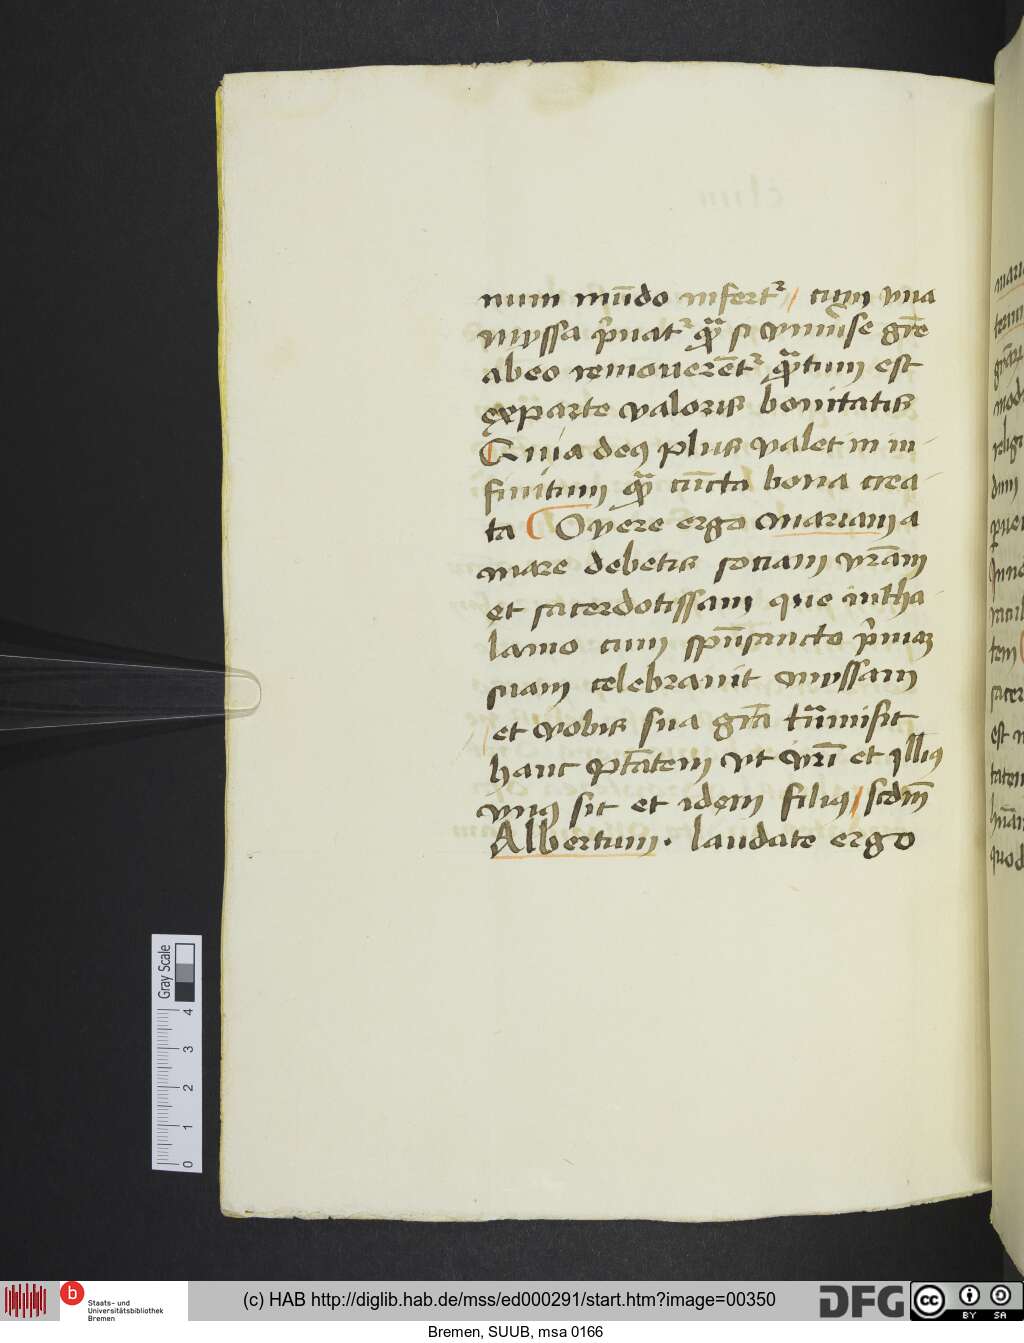 num mūdo infertᷣ / cum vna
myssa p̾uatᷣ qᷓ si vniu̾se gr̄e
abeo remouerētᷣ qᷓtum est
exparte valoris bonitatis
Quia deꝰ plus valet in in-
finitum qᷓ cūcta bona crea-
ta Opere ergo mariam a
mare debetis sociam vr̄am
et sacerdotissam que intha-
lamo cum spūsancto p̾mam
suam celebrauit myssam
et vobis sua gr̄a trāsmisit
hanc ptātem vt vr̄i et illiꝰ
vnꝰ sit et idem filiꝰ / scdm̄
Albertum . laudate ergo
maria
quod
Gray Scale
0 1 2 3 4
b Staats- und
Universitätsbibliothek
Bremen
(c) HAB http://diglib.hab.de/mss/ed000291/start.htm?image=00350
DFG
cc BY SA
Bremen, SUUB, msa 0166